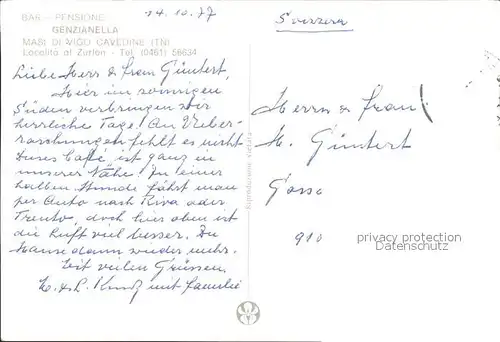 BAR - PENSIONE
GENZIANELLA
MASI DI VIGO CAVEDINE (TN)
Località al Zurlon - Tel. (0461) 56634
14.10.77
Liebe Herr & Frau Güntert,
Hier im sonnigen
Süden verbringen wir
herrliche Tage! An Ueber-
raschungen fehlt es nicht
dieses Café, ist ganz in
unserer Nähe! In einer
halben Stunde fährt man
per Auto nach Riva oder
Trento, doch hier oben ist
die Luft viel besser. Zu
Hause dann wieder mehr.
Mit vielen Grüssen
H. & L. Kunz mit Familie
Svizzera
Herrn & Frau
H. Güntert
910
privacy protection
Datenschutz